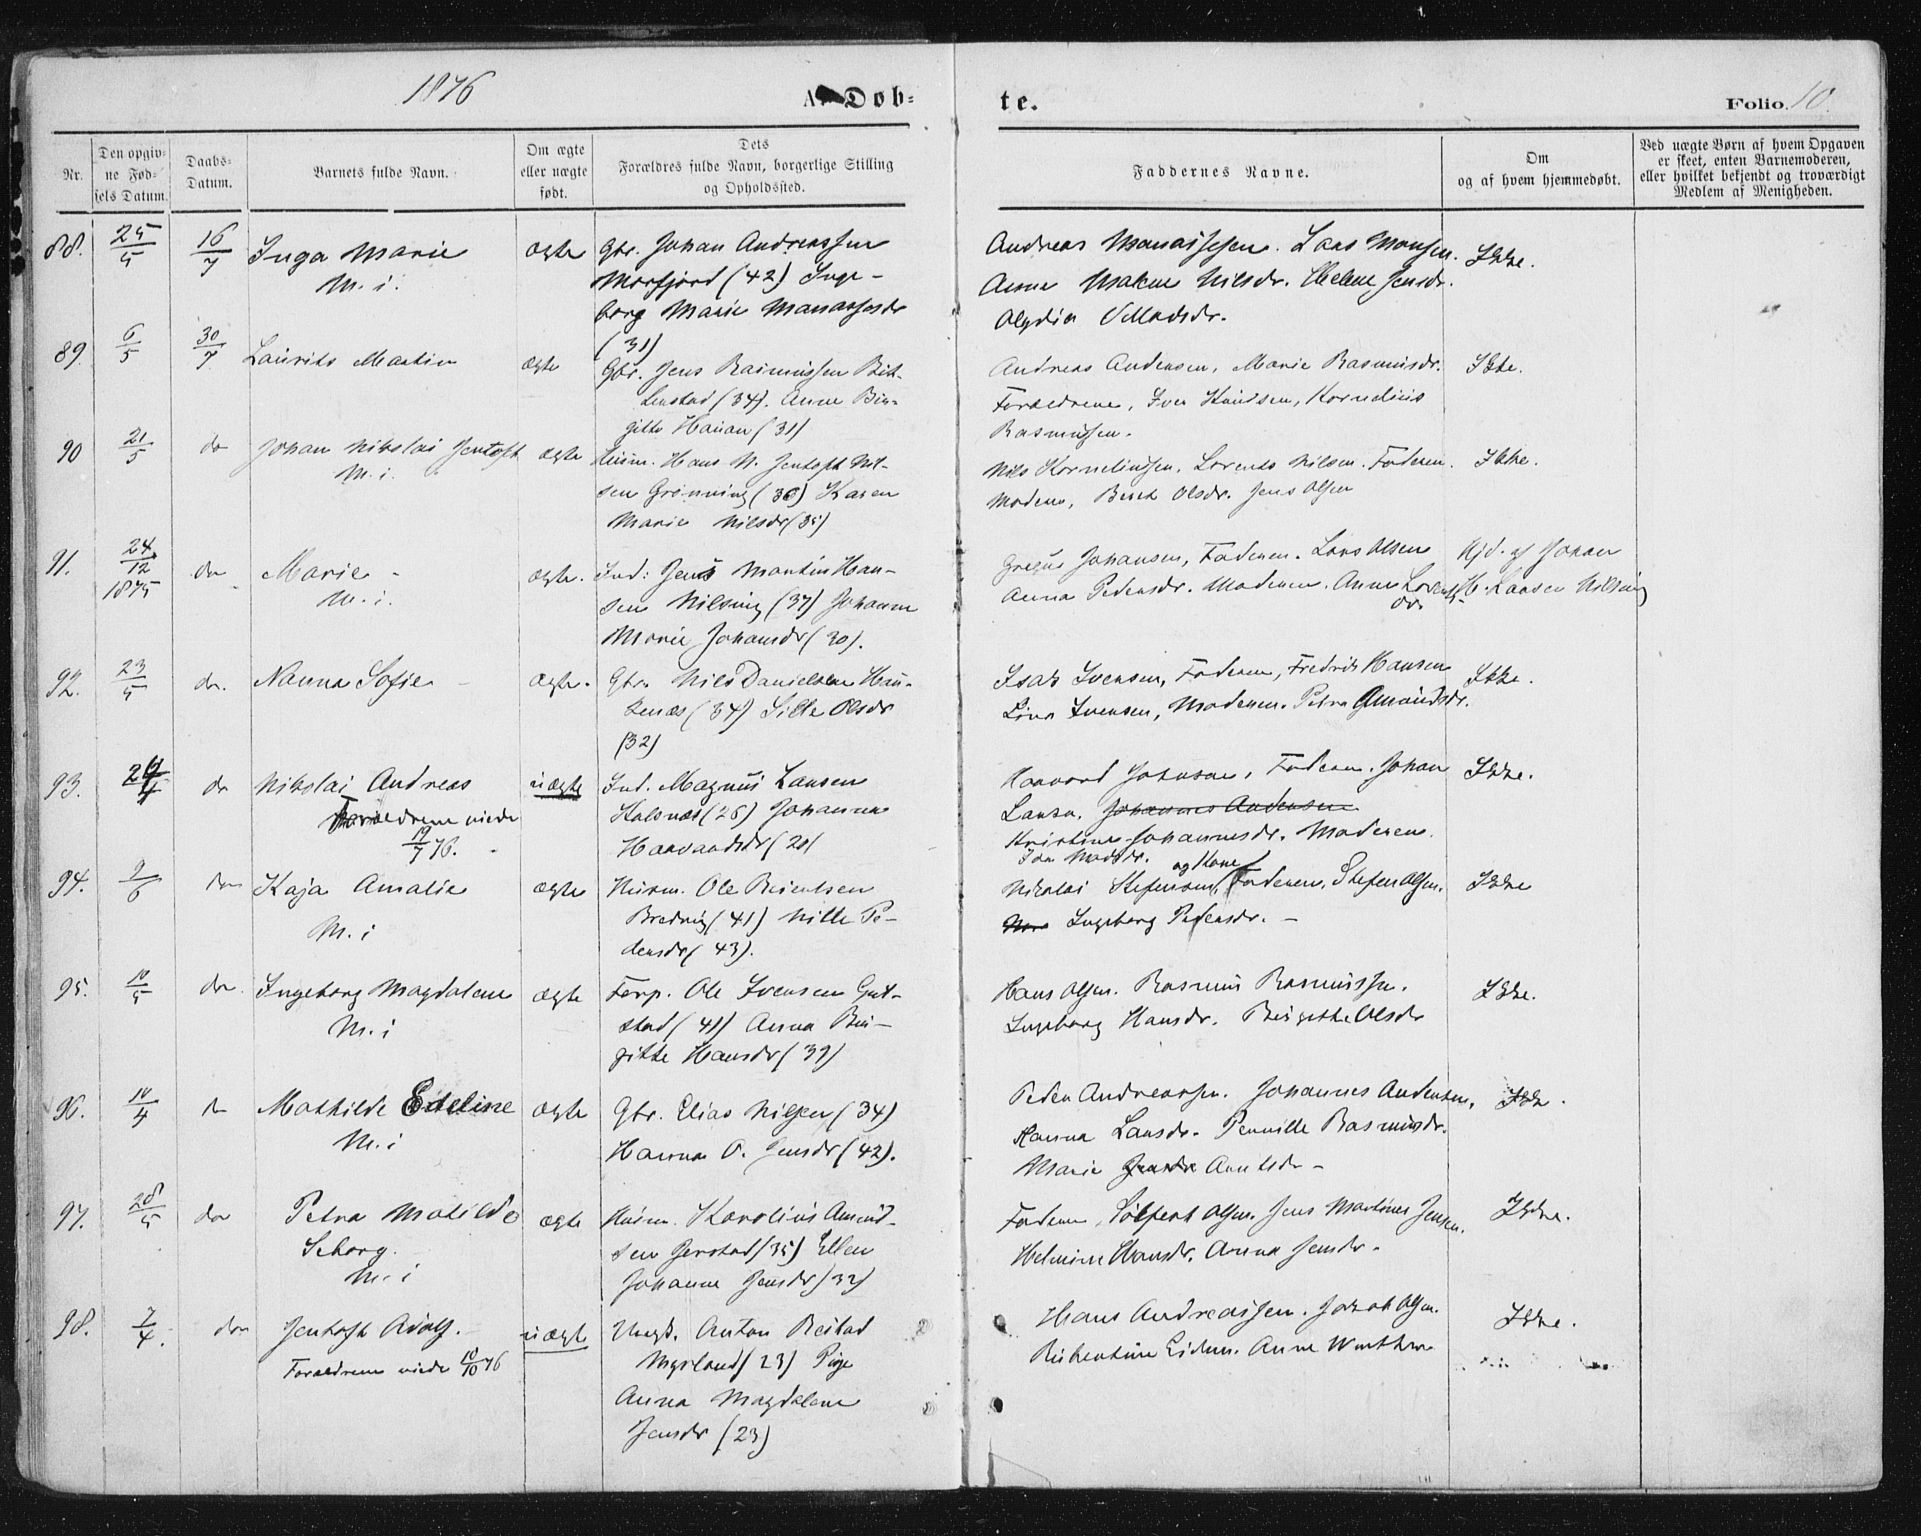 1876
A. Døb-
te.
Folio. 10.
Nr.
Den opgiv-
ne Fød-
sels Datum.
Daabs-
Datum.
Barnets fulde Navn.
Om ægte
eller uægte
født.
Dets
Forældres fulde Navn, borgerlige Stilling
og Opholdssted.
Faddernes Navne.
Om
og af hvem hjemmedøbt.
Ved uægte Børn af hvem Opgaven
er skeet, enten Barnemoderen,
eller hvilket bekjendt og troværdigt
Medlem af Menigheden.
88. 25/5 16/7 Inga Marie ægte Gbr. Johan Andreassen
M. i. Morfjord (42) Inge-
borg Marie Manassesdr
(31)
Andreas Manassesen. Lars Monsen. Ikke.
Anne Malene Nilsdr. Helene Jensdr.
Alydia Madsdr.
89. 6/5 30/7 Laurits Martin ægte Gbr. Jens Rasmussen
(34). Anne Bir-
gitte (31)
Andreas Andersen, Marie Rasmusdr. Ikke.
Forældrene, Iver Knudsen, Kornelius
Rasmussen.
90 21/5 do Johan Nikolai Jentoft ægte Huusm. Hans N. Jentoft Nil-
M. i. sen Grønning (36) Karen
Marie Nilsdr (35)
Nils Korneliussen. Lorents Nilsen. Faderen. Ikke.
Moderen, Olsdr. Jens Olsen
91. 24/12 1875 do Marie - ægte. Ind: Jens Martin Han-
M. i. sen Nilsing (37) Johanne
Marie Johansdr (30).
Johansen, Faderen. Lars Olsen Hjd. af Johan
Anna Pedersdr. Moderen. Anne Lorents- H. Larsen Nilsing
dr
92. 23/5 do. Nanna Sofie - ægte. Gbr. Nils Danielsen Hau-
kenæs (34) Silla Olsdr
(32)
Isak Iversen, Faderen, Fredrik Hansen Ikke.
Lina Iversen, Moderen. Petra Amundsdr.
93. do Nikolai Andreas uægte Ind. Magnus Larsen
Forældrene viede Kalsnæs (26) Johanna
19/7 76. Haavardsdr (20)
Haavard Johnsen, Faderen. Johan Ikke.
Larsen. Johannes Andersen
Kristine Johannesdr. Moderen.
Ida Madsdr. og Kone
94. 9/6 do Kaja Amalie ægte Huusm. Ole Berentsen
M. i Bredvig (41) Nille Pe-
dersdr (43).
Nikolai Stefensen, Faderen, Stefen Olsen. Ikke
Ingeborg Pedersdr. -
95. 10/5 do. Ingeborg Magdalene ægte Forp. Ole Iversen Gul-
M. i stad (41) Anna Bir-
gitte Hansdr (39)
Hans Olsen. Rasmus Rasmussen. Ikke.
Ingeborg Hansdr. Birgitte Olsdr
96. 10/4 do Mathilde Edeline ægte Gbr. Elias Nilsen (34)
M. i Hanna O. Jensdr (42).
Peder Andreassen. Johannes Andersen, Ikke.
Hanna Larsdr. Pernille Rasmusdr.
Marie Jensdr Arntsdr -
97. 28/5 do Petra Matilde ægte Huusm. Karolius Amund-
Seborg. sen Jerstad (35) Ellen
M. i Johanne Jensdr (32)
Faderen, Olsen. Jens Martinus Jensen. Ikke.
Helmine Hansdr. Anna Jensdr.
98. 7/4. do Jentoft Adolf. uægte Ungk. Anton Reistad
Forældrene viede 10/10 76 Myrland (23) Pige
Anna Magdalena
Jensdr (23)
Hans Andreassen. Jakob Olsen. Ikke.
Anne Winther